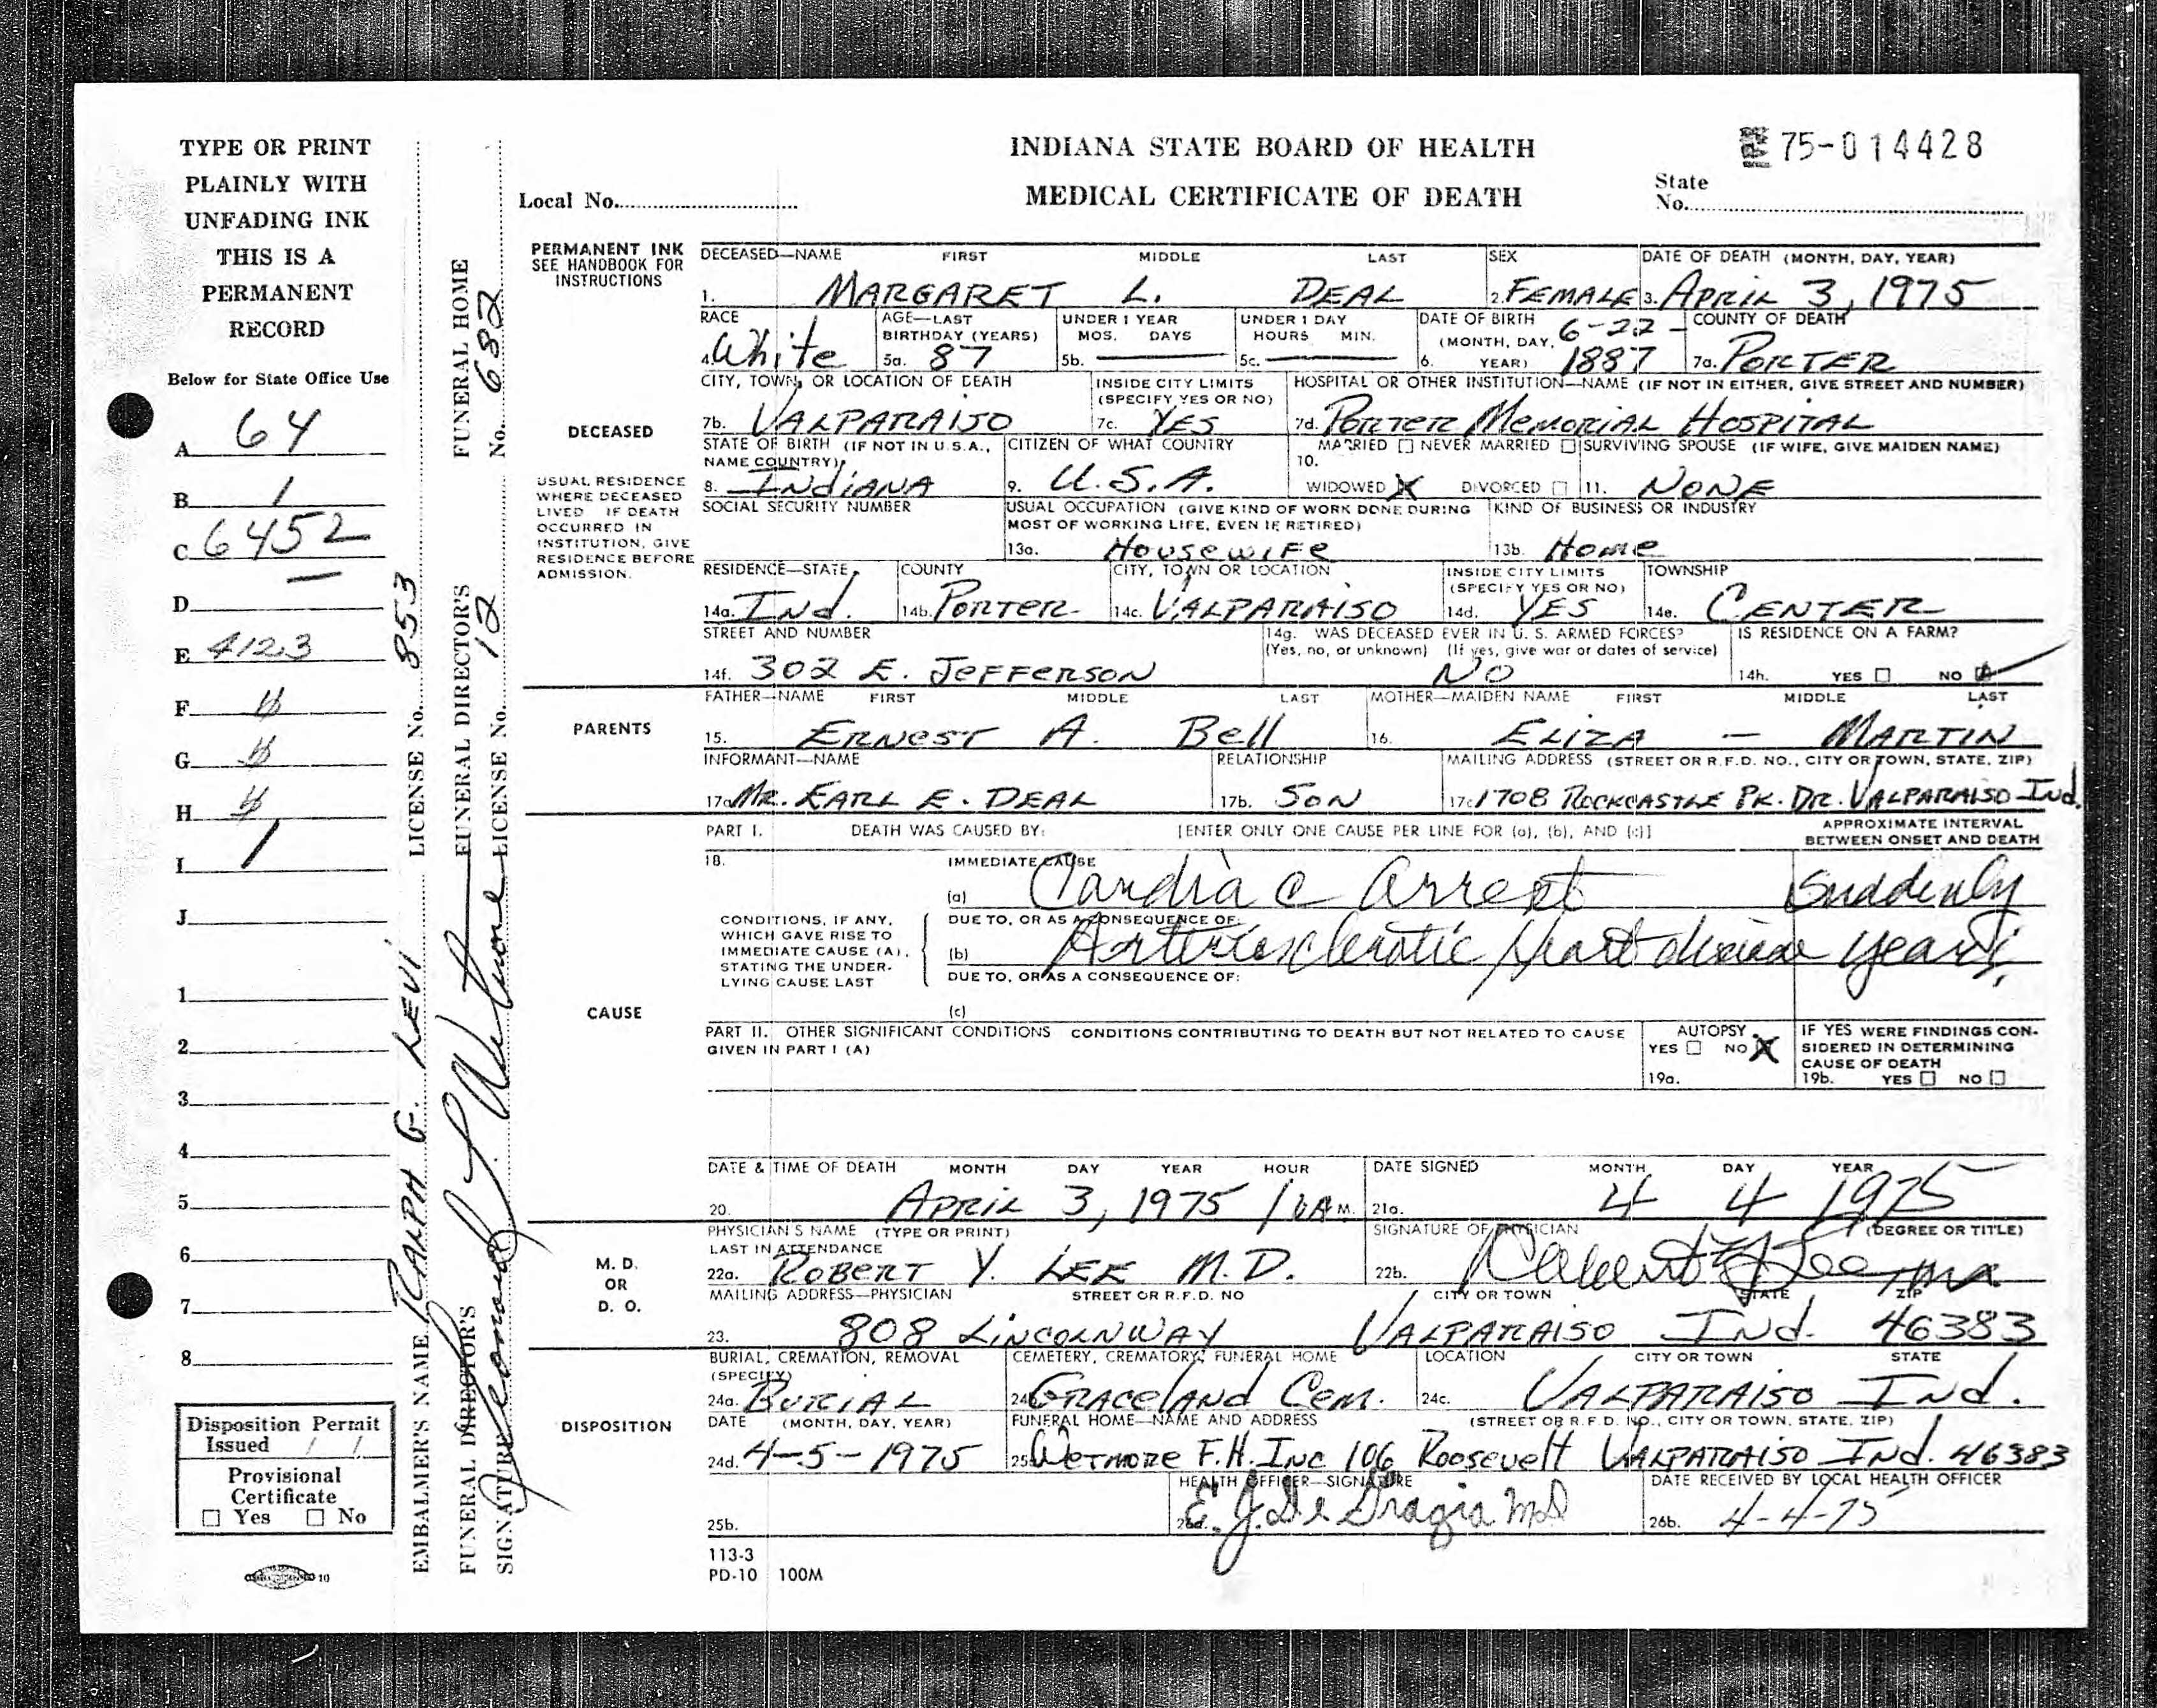 TYPE OR PRINT
PLAINLY WITH
UNFADING INK
THIS IS A
PERMANENT
RECORD
Below for State Office Use
A 64
B 1
C 6452
D
E 4123
F 4
G 4
H 4
I 1
J
1
2
3
4
5
6
7
8
Disposition Permit
Issued / /
Provisional
Certificate
☐ Yes ☐ No
EMBALMER'S NAME RALPH G. LEVI LICENSE No. 853
FUNERAL DIRECTOR'S FUNERAL DIRECTOR'S FUNERAL HOME
SIGNATURE Leonard J. Wetmore LICENSE No. 12 No. 682
INDIANA STATE BOARD OF HEALTH
MEDICAL CERTIFICATE OF DEATH
75-014428
Local No.
State
No.
PERMANENT INK
SEE HANDBOOK FOR
INSTRUCTIONS
DECEASED—NAME FIRST MIDDLE LAST SEX DATE OF DEATH (MONTH, DAY, YEAR)
1. MARGARET L. DEAL 2. FEMALE 3. APRIL 3, 1975
RACE AGE—LAST BIRTHDAY (YEARS) UNDER 1 YEAR MOS. DAYS UNDER 1 DAY HOURS MIN. DATE OF BIRTH (MONTH, DAY, YEAR) COUNTY OF DEATH
4. White 5a. 87 5b. — 5c. — 6. 6-22-1887 7a. PORTER
CITY, TOWN, OR LOCATION OF DEATH INSIDE CITY LIMITS (SPECIFY YES OR NO) HOSPITAL OR OTHER INSTITUTION—NAME (IF NOT IN EITHER, GIVE STREET AND NUMBER)
DECEASED
7b. VALPARAISO 7c. YES 7d. PORTER MEMORIAL HOSPITAL
STATE OF BIRTH (IF NOT IN U.S.A., NAME COUNTRY) CITIZEN OF WHAT COUNTRY MARRIED ☐ NEVER MARRIED ☐ SURVIVING SPOUSE (IF WIFE, GIVE MAIDEN NAME)
8. INDIANA 9. U.S.A. 10. WIDOWED X DIVORCED ☐ 11. NONE
USUAL RESIDENCE
WHERE DECEASED
LIVED IF DEATH
OCCURRED IN
INSTITUTION, GIVE
RESIDENCE BEFORE
ADMISSION.
SOCIAL SECURITY NUMBER USUAL OCCUPATION (GIVE KIND OF WORK DONE DURING MOST OF WORKING LIFE, EVEN IF RETIRED) KIND OF BUSINESS OR INDUSTRY
13a. HOUSEWIFE 13b. Home
RESIDENCE—STATE COUNTY CITY, TOWN OR LOCATION INSIDE CITY LIMITS (SPECIFY YES OR NO) TOWNSHIP
14a. Ind. 14b. PORTER 14c. VALPARAISO 14d. YES 14e. CENTER
STREET AND NUMBER 14g. WAS DECEASED EVER IN U. S. ARMED FORCES? (Yes, no, or unknown) (If yes, give war or dates of service) IS RESIDENCE ON A FARM?
14f. 302 E. JEFFERSON NO 14h. YES ☐ NO ☒
PARENTS
FATHER—NAME FIRST MIDDLE LAST MOTHER—MAIDEN NAME FIRST MIDDLE LAST
15. ERNEST A. Bell 16. ELIZA — MARTIN
INFORMANT—NAME RELATIONSHIP MAILING ADDRESS (STREET OR R.F.D. NO., CITY OR TOWN, STATE, ZIP)
17a. MR. EARL E. DEAL 17b. SON 17c. 1708 ROCKCASTLE PK. DR. VALPARAISO Ind.
PART I. DEATH WAS CAUSED BY: [ENTER ONLY ONE CAUSE PER LINE FOR (a), (b), AND (c)] APPROXIMATE INTERVAL BETWEEN ONSET AND DEATH
18. IMMEDIATE CAUSE
(a) Cardiac arrest Suddenly
CONDITIONS, IF ANY,
WHICH GAVE RISE TO
IMMEDIATE CAUSE (A),
STATING THE UNDER-
LYING CAUSE LAST
DUE TO, OR AS A CONSEQUENCE OF:
(b) Arteriosclerotic heart disease years
DUE TO, OR AS A CONSEQUENCE OF:
(c)
CAUSE
PART II. OTHER SIGNIFICANT CONDITIONS CONDITIONS CONTRIBUTING TO DEATH BUT NOT RELATED TO CAUSE GIVEN IN PART I (A)
AUTOPSY
YES ☐ NO X
19a.
IF YES WERE FINDINGS CON-
SIDERED IN DETERMINING
CAUSE OF DEATH
19b. YES ☐ NO ☐
DATE & TIME OF DEATH MONTH DAY YEAR HOUR DATE SIGNED MONTH DAY YEAR
20. APRIL 3, 1975 M. 21a. 4 4 1975
M. D.
OR
D. O.
PHYSICIAN'S NAME (TYPE OR PRINT) LAST IN ATTENDANCE SIGNATURE OF PHYSICIAN (DEGREE OR TITLE)
22a. ROBERT Y. LEE M.D. 22b. Robert Y Lee MD
MAILING ADDRESS—PHYSICIAN STREET OR R.F.D. NO CITY OR TOWN STATE ZIP
23. 808 LINCOLNWAY VALPARAISO Ind. 46383
BURIAL, CREMATION, REMOVAL (SPECIFY) CEMETERY, CREMATORY, FUNERAL HOME LOCATION CITY OR TOWN STATE
24a. BURIAL 24b. GRACELAND CEM. 24c. VALPARAISO Ind.
DISPOSITION
DATE (MONTH, DAY, YEAR) FUNERAL HOME—NAME AND ADDRESS (STREET OR R.F.D. NO., CITY OR TOWN, STATE, ZIP)
24d. 4-5-1975 25a. WETMORE F.H. INC 106 Roosevelt VALPARAISO Ind. 46383
HEALTH OFFICER—SIGNATURE DATE RECEIVED BY LOCAL HEALTH OFFICER
25b. 26a. E. J. De Grazia MD 26b. 4-4-75
113-3
PD-10 100M